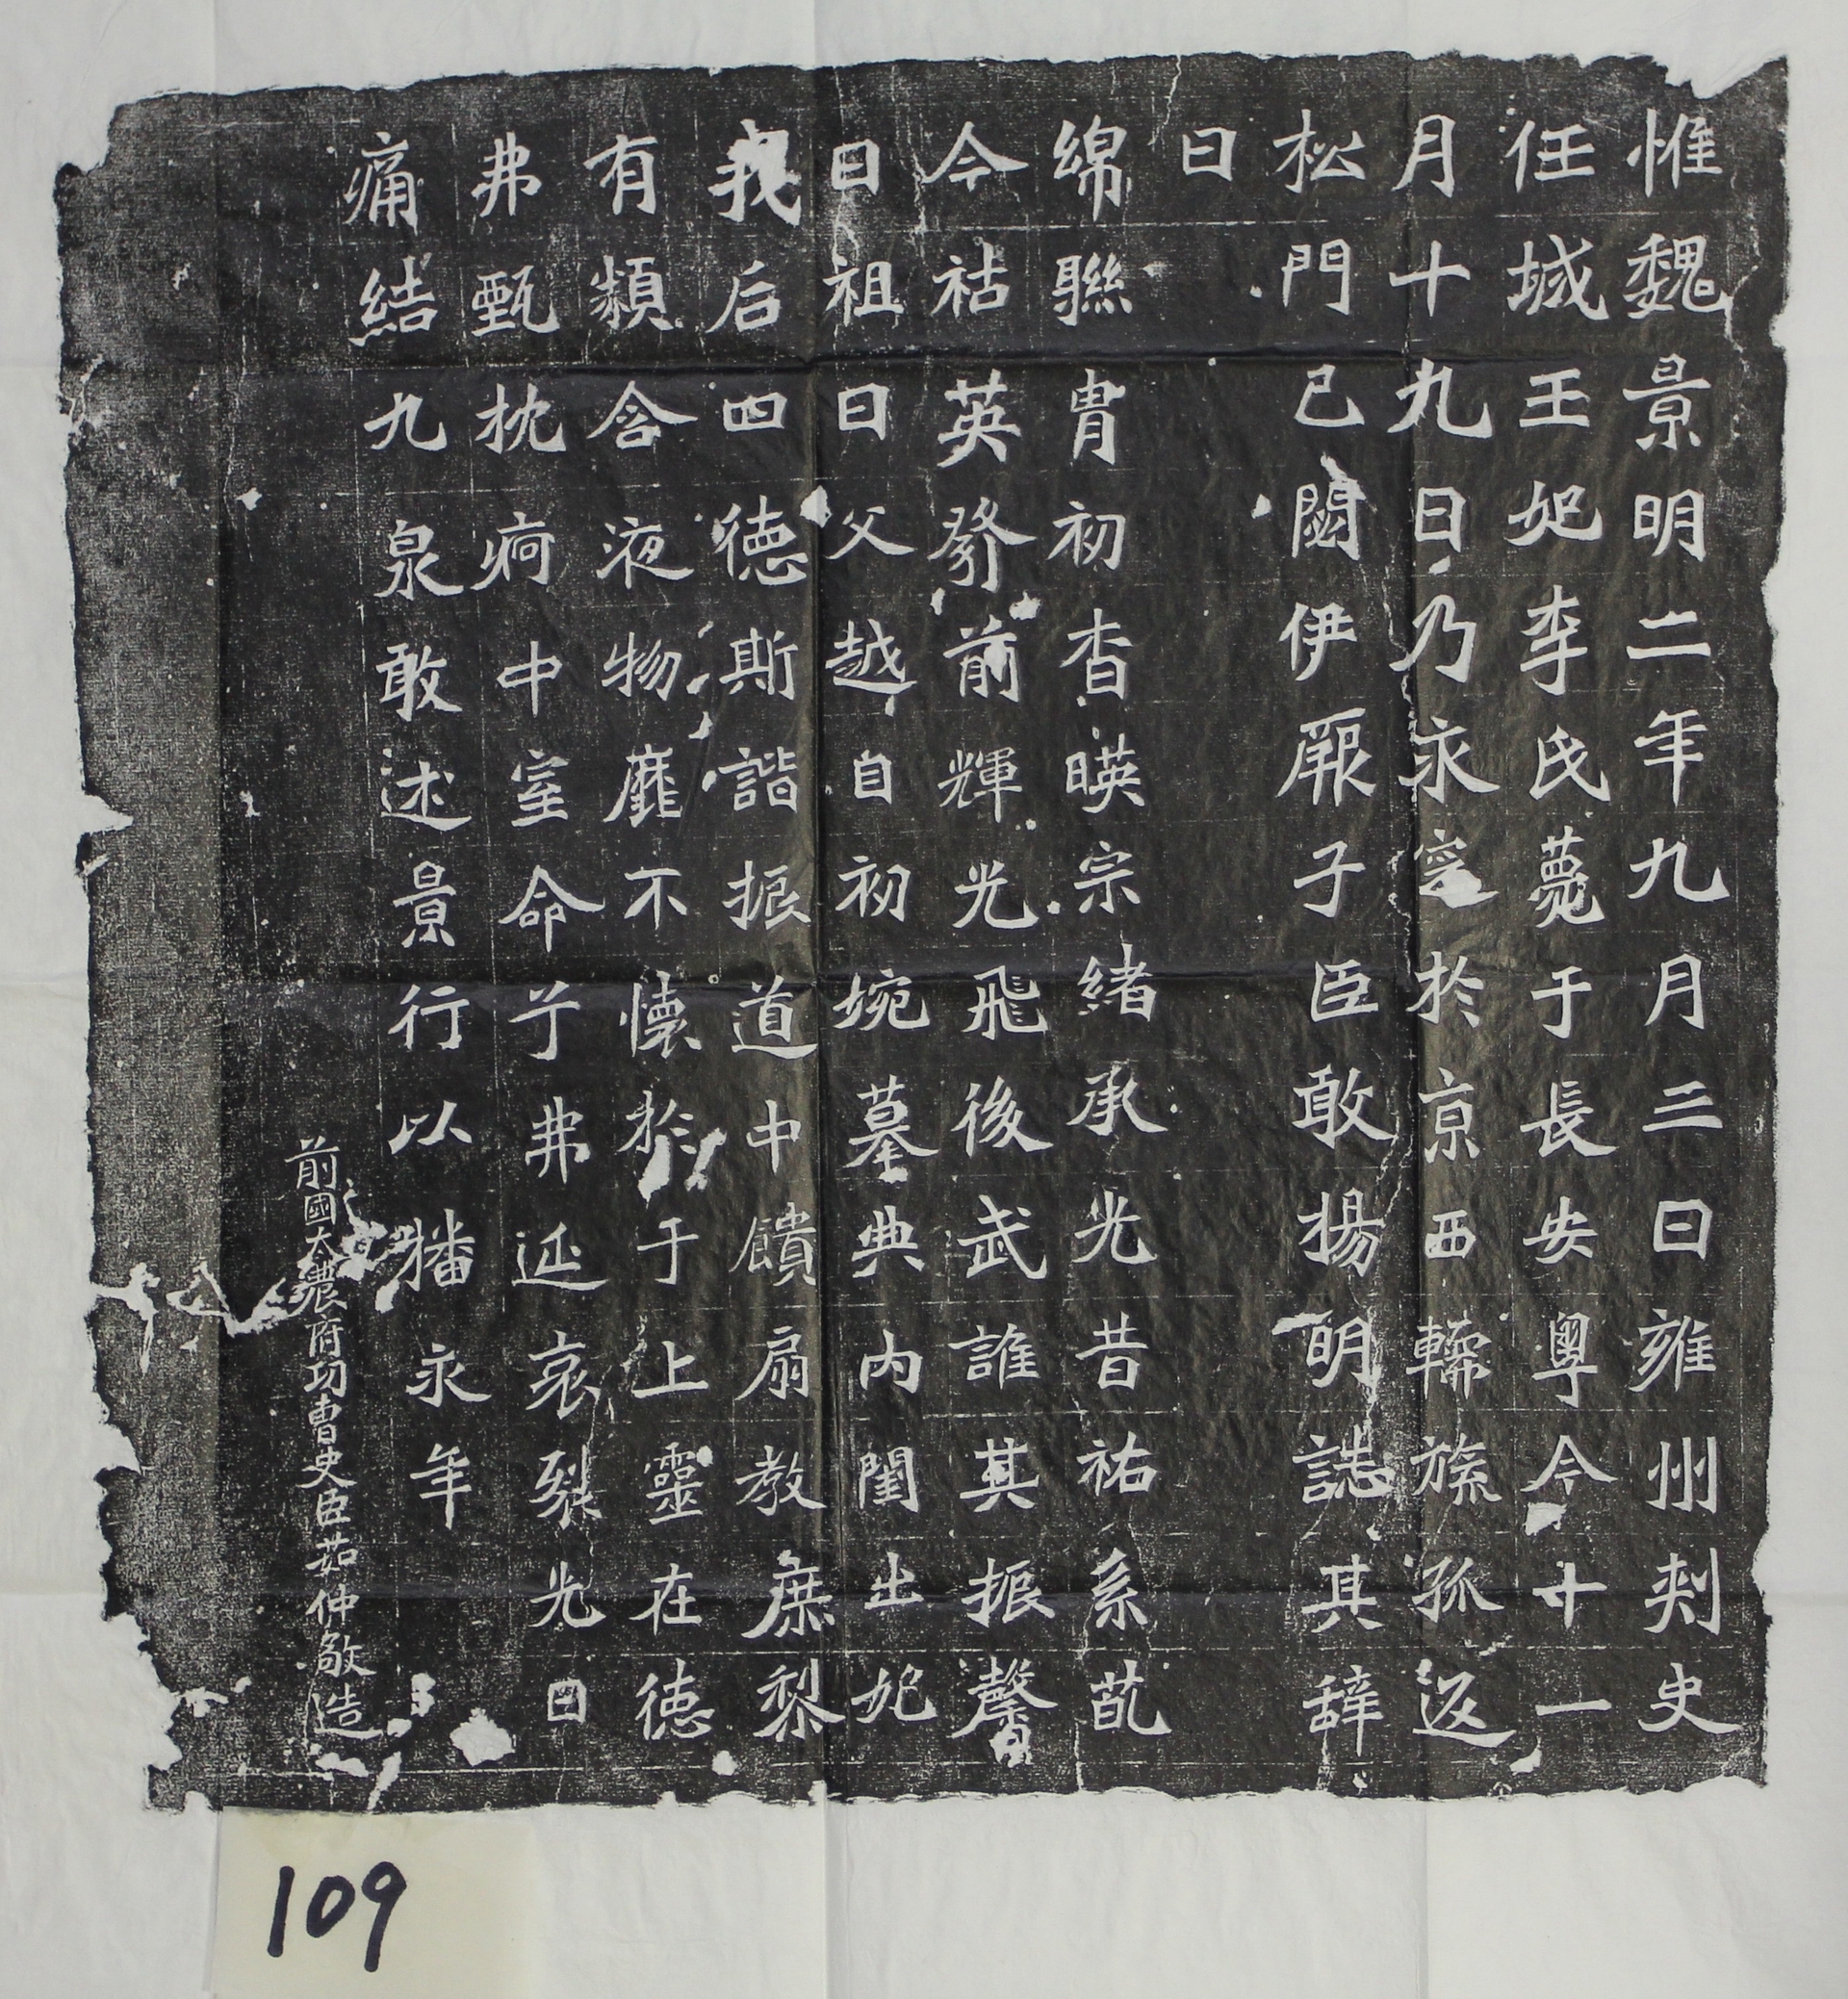 惟魏景明二年九月三日雍州刾史
任城王妃李氏薨于長安粵今十一
月十九日乃永窆於京西轜旐孤返
松門已闔伊厥子臣敢揚明誌其辞
曰
綿聯胄初杳暎宗緒承光昔祐系茂
今祜英發前輝光飛後武誰其振馨
曰祖曰父越自初婉墓典內闈出妃
我后四德斯諧振道中饋扇教庶黎
有蘋含液物靡不懷於于上靈在德
弗甄枕痾中室命兮弗延哀裂光日
痛結九泉敢述景行以播永年
前國太農府功曹史臣茹仲敬造
109